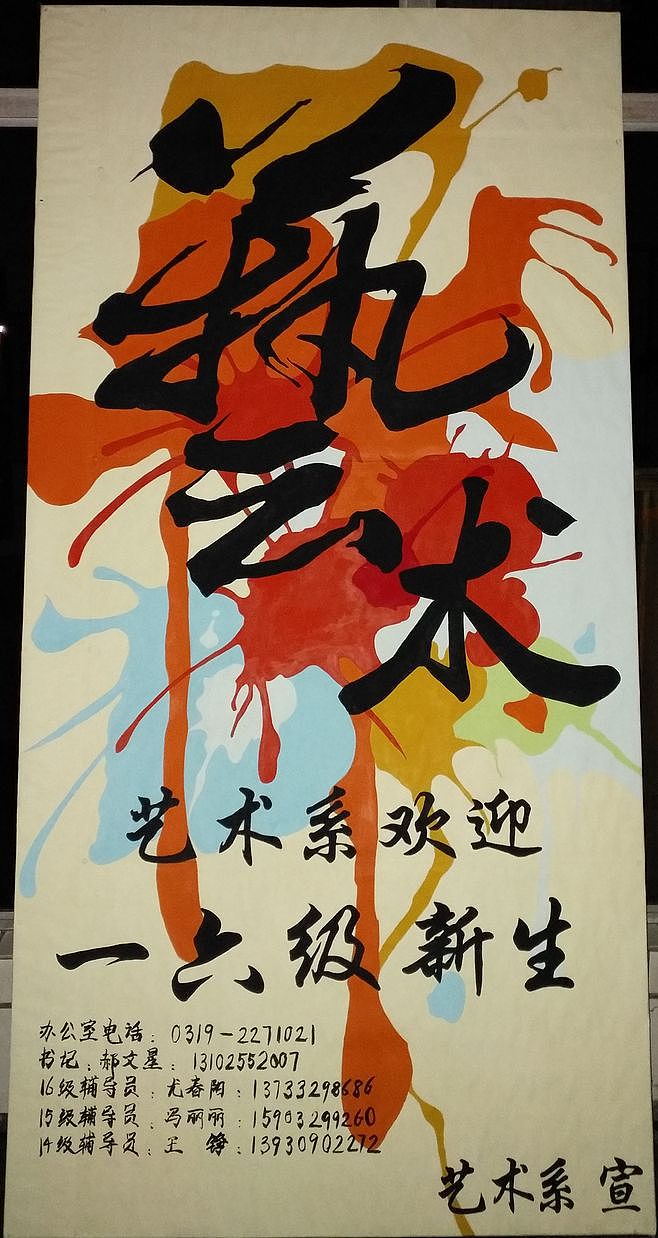 藝术
艺术系欢迎
一六级新生
办公室电话：0319-2271021
书记：郝文星：13102552007
16级辅导员：尤春阳：13733298686
15级辅导员：冯丽丽：15903299260
14级辅导员：王 铮：13930902272
艺术系 宣